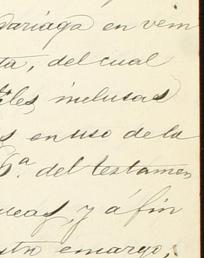 dariaga en vein
ta, del cual
tiles, inclusas
s en uso de la
6ª. del testamen
neas, y á fin
stro encargo,